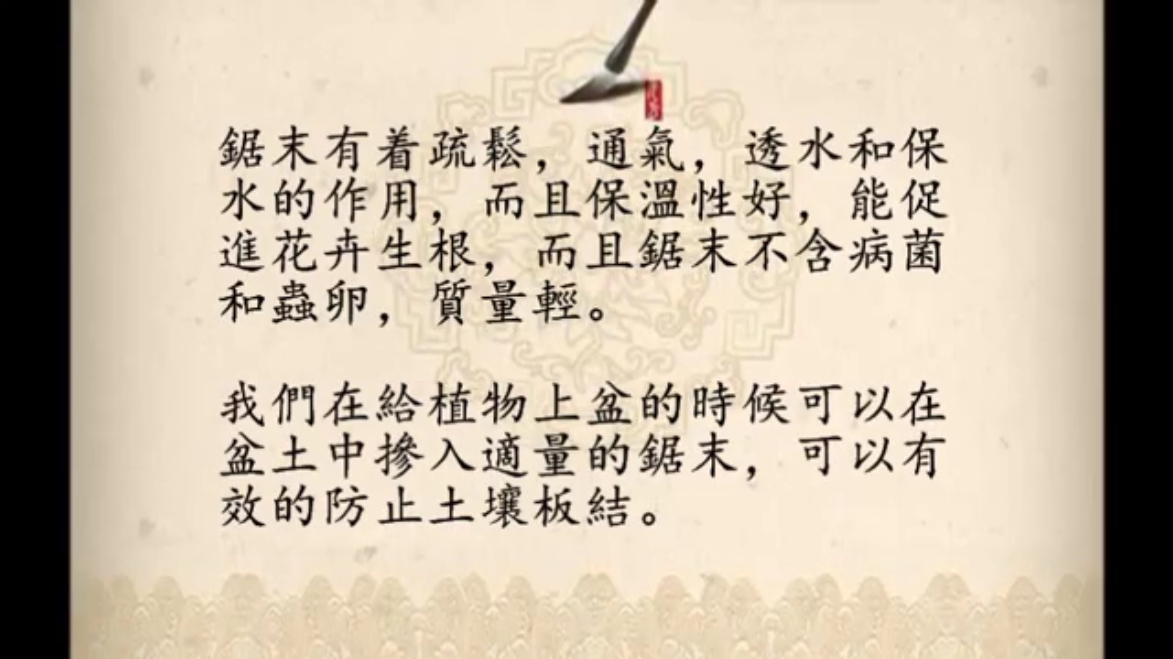 鋸末有着疏鬆，通氣，透水和保
水的作用，而且保溫性好，能促
進花卉生根，而且鋸末不含病菌
和蟲卵，質量輕。
我們在給植物上盆的時候可以在
盆土中摻入適量的鋸末，可以有
效的防止土壤板結。